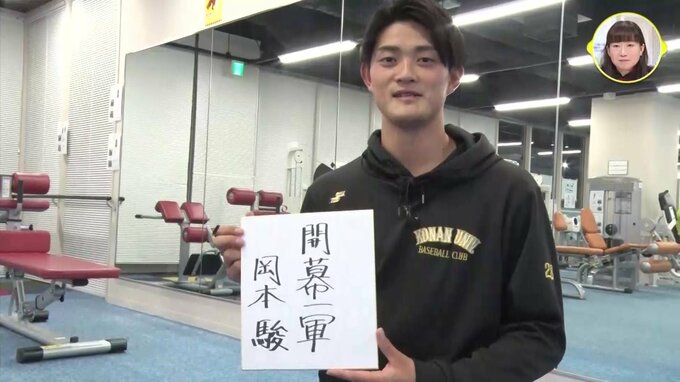 開幕一軍
岡本駿
KONAN UNIV.
BASEBALL CLUB